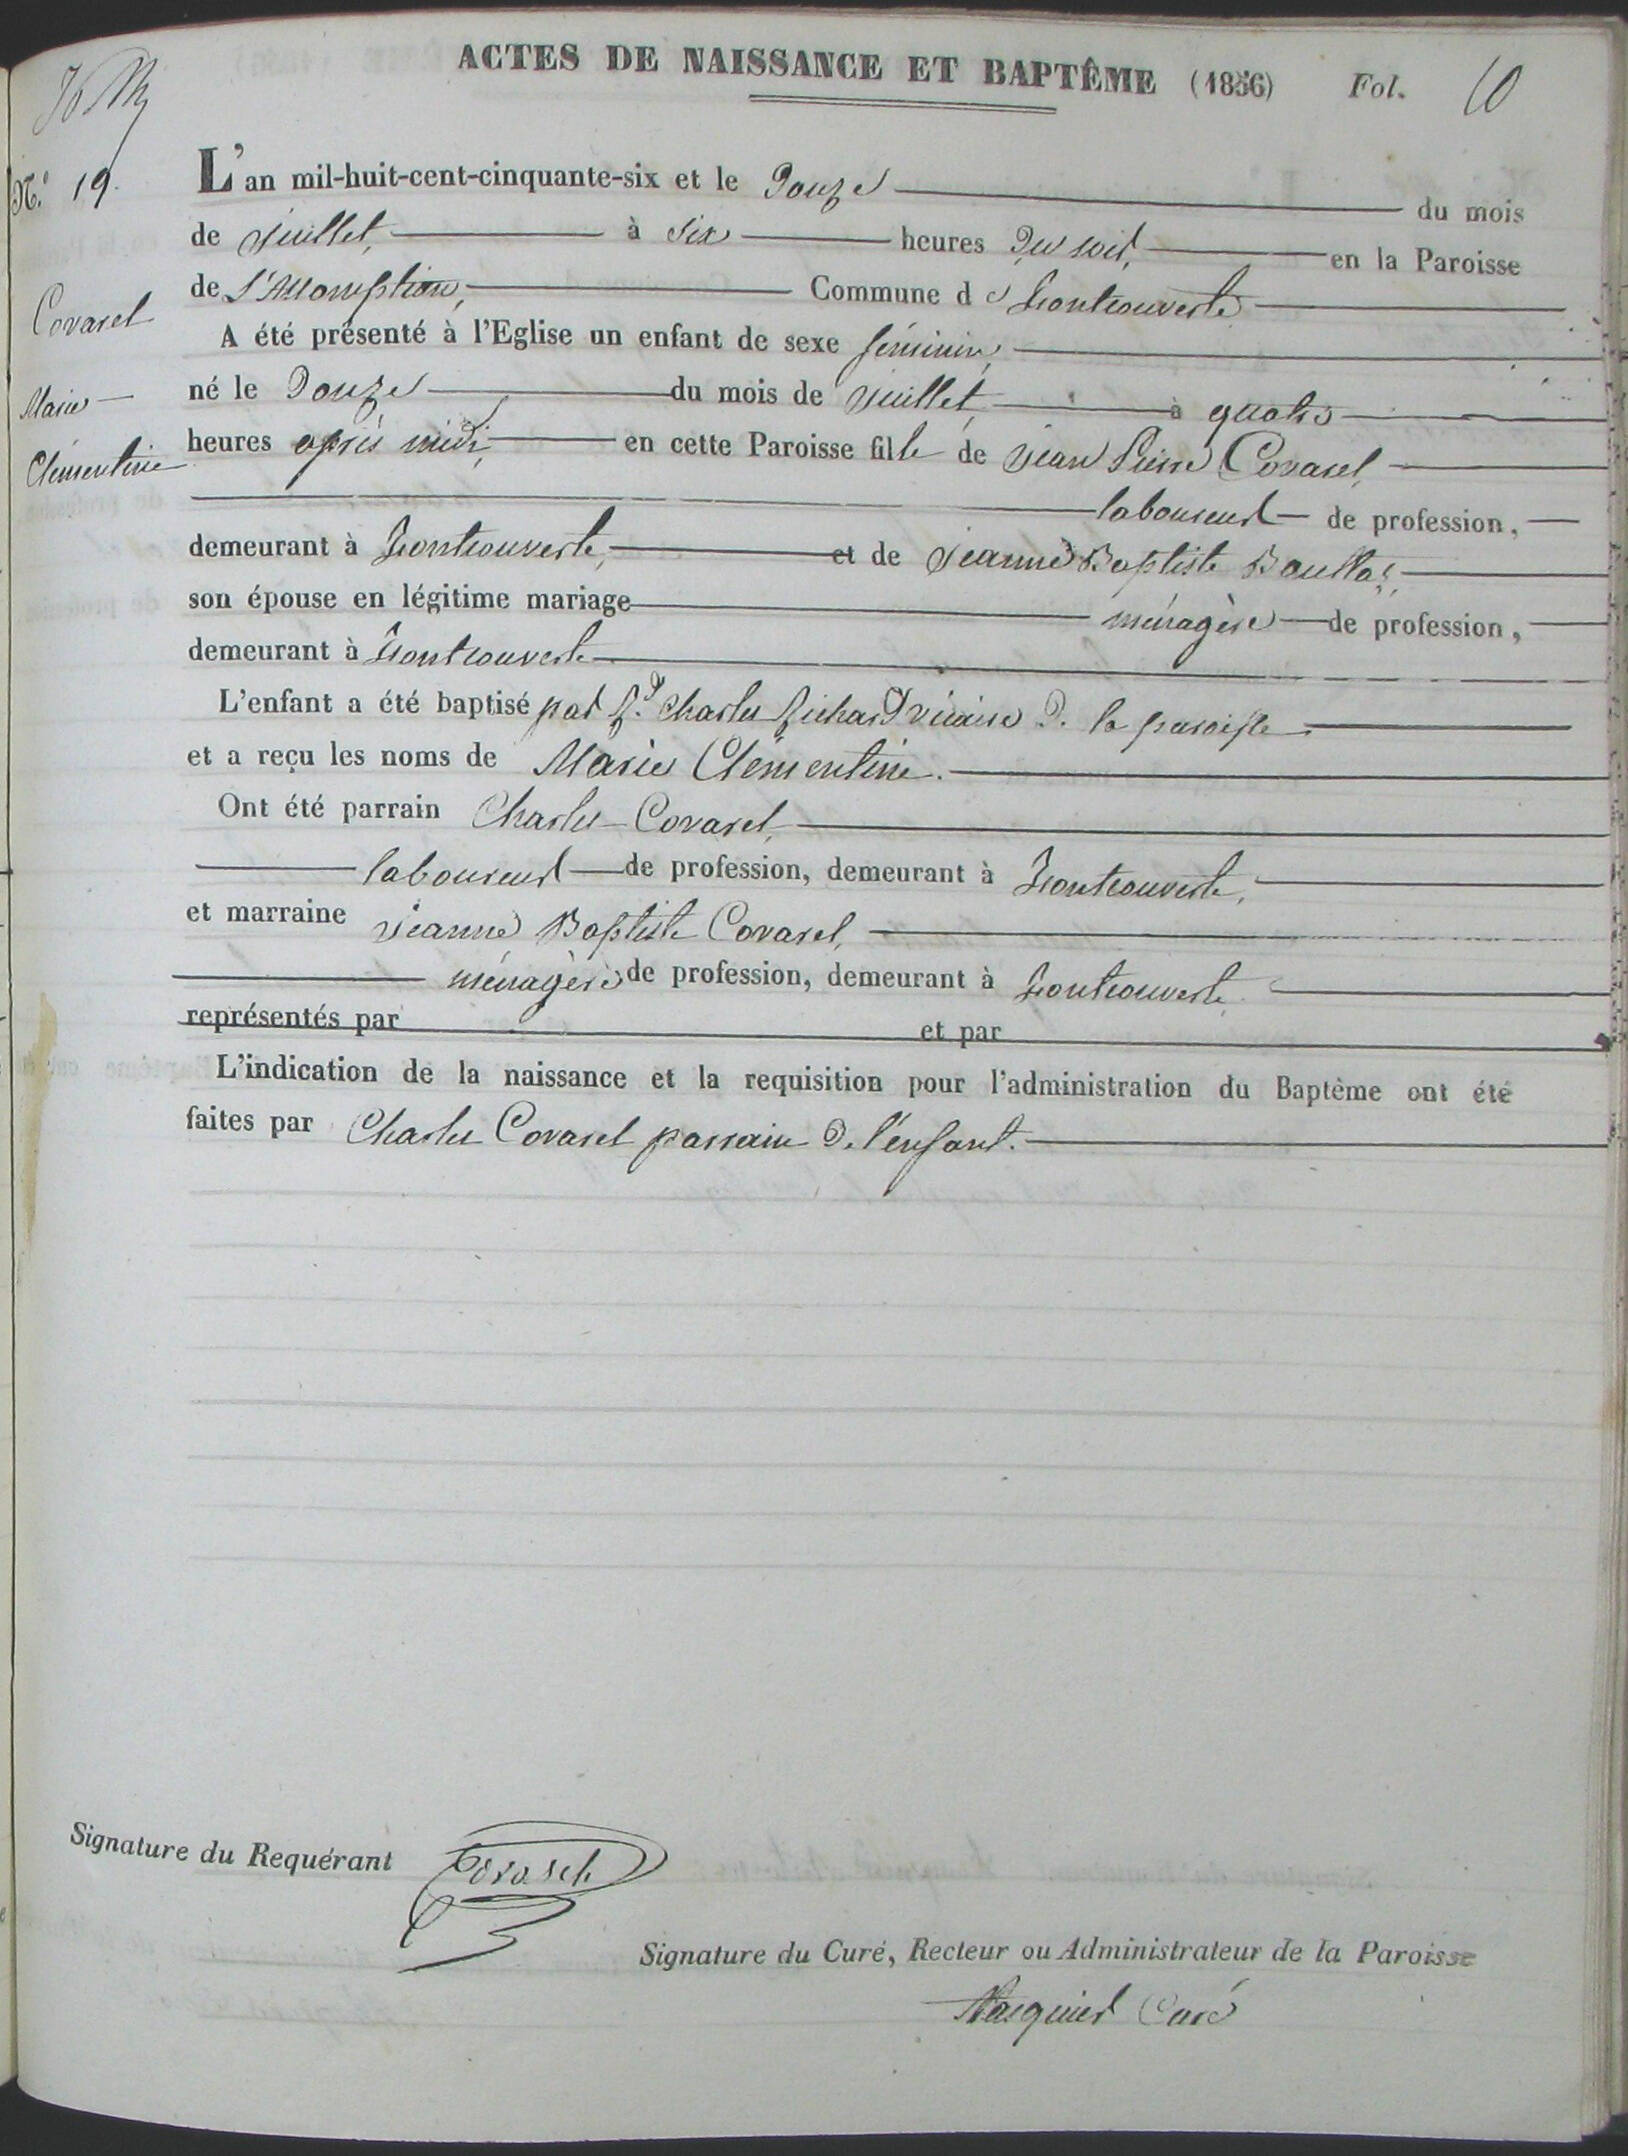 ACTES DE NAISSANCE ET BAPTÊME (1856) Fol. 10
N.° 19.
Covarel
Marie
Clémentine
L'an mil-huit-cent-cinquante-six et le Douze du mois
de Juillet, à six heures Du soir, en la Paroisse
de L'Assomption, Commune d e Montrouverte
A été présenté à l'Eglise un enfant de sexe féminin,
né le Douze du mois de Juillet, à quatre
heures après midi, en cette Paroisse fille de Jean Pierre Covarel,
laboureur de profession,
demeurant à Montrouverte, et de Jeanne Baptiste
son épouse en légitime mariage ménagère de profession,
demeurant à Montrouverte
L'enfant a été baptisé par Rd. Charles Richard vicaire De la paroisse
et a reçu les noms de Marie Clémentine.
Ont été parrain Charles Covarel,
laboureur de profession, demeurant à Montrouverte,
et marraine Jeanne Baptiste Covarel,
ménagère de profession, demeurant à Montrouverte.
représentés par et par
L'indication de la naissance et la requisition pour l'administration du Baptème ont été
faites par Charles Covarel parrain De l'enfant.
Signature du Requérant
Signature du Curé, Recteur ou Administrateur de la Paroisse
Curé